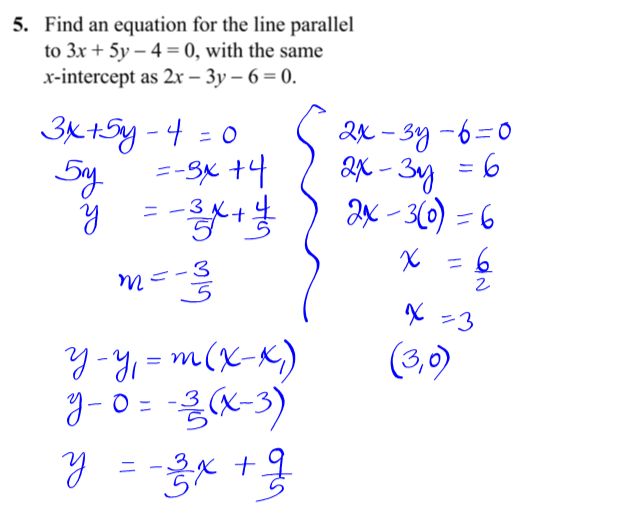 5. Find an equation for the line parallel
to 3x + 5y – 4 = 0, with the same
x-intercept as 2x – 3y – 6 = 0.
3x+5y - 4 = 0
5y = -3x + 4
y = -3/5 x + 4/5
m = -3/5
2x - 3y - 6 = 0
2x - 3y = 6
2x - 3(0) = 6
x = 6/2
x = 3
(3,0)
y - y₁ = m(x-x₁)
y - 0 = -3/5(x-3)
y = -3/5 x + 9/5